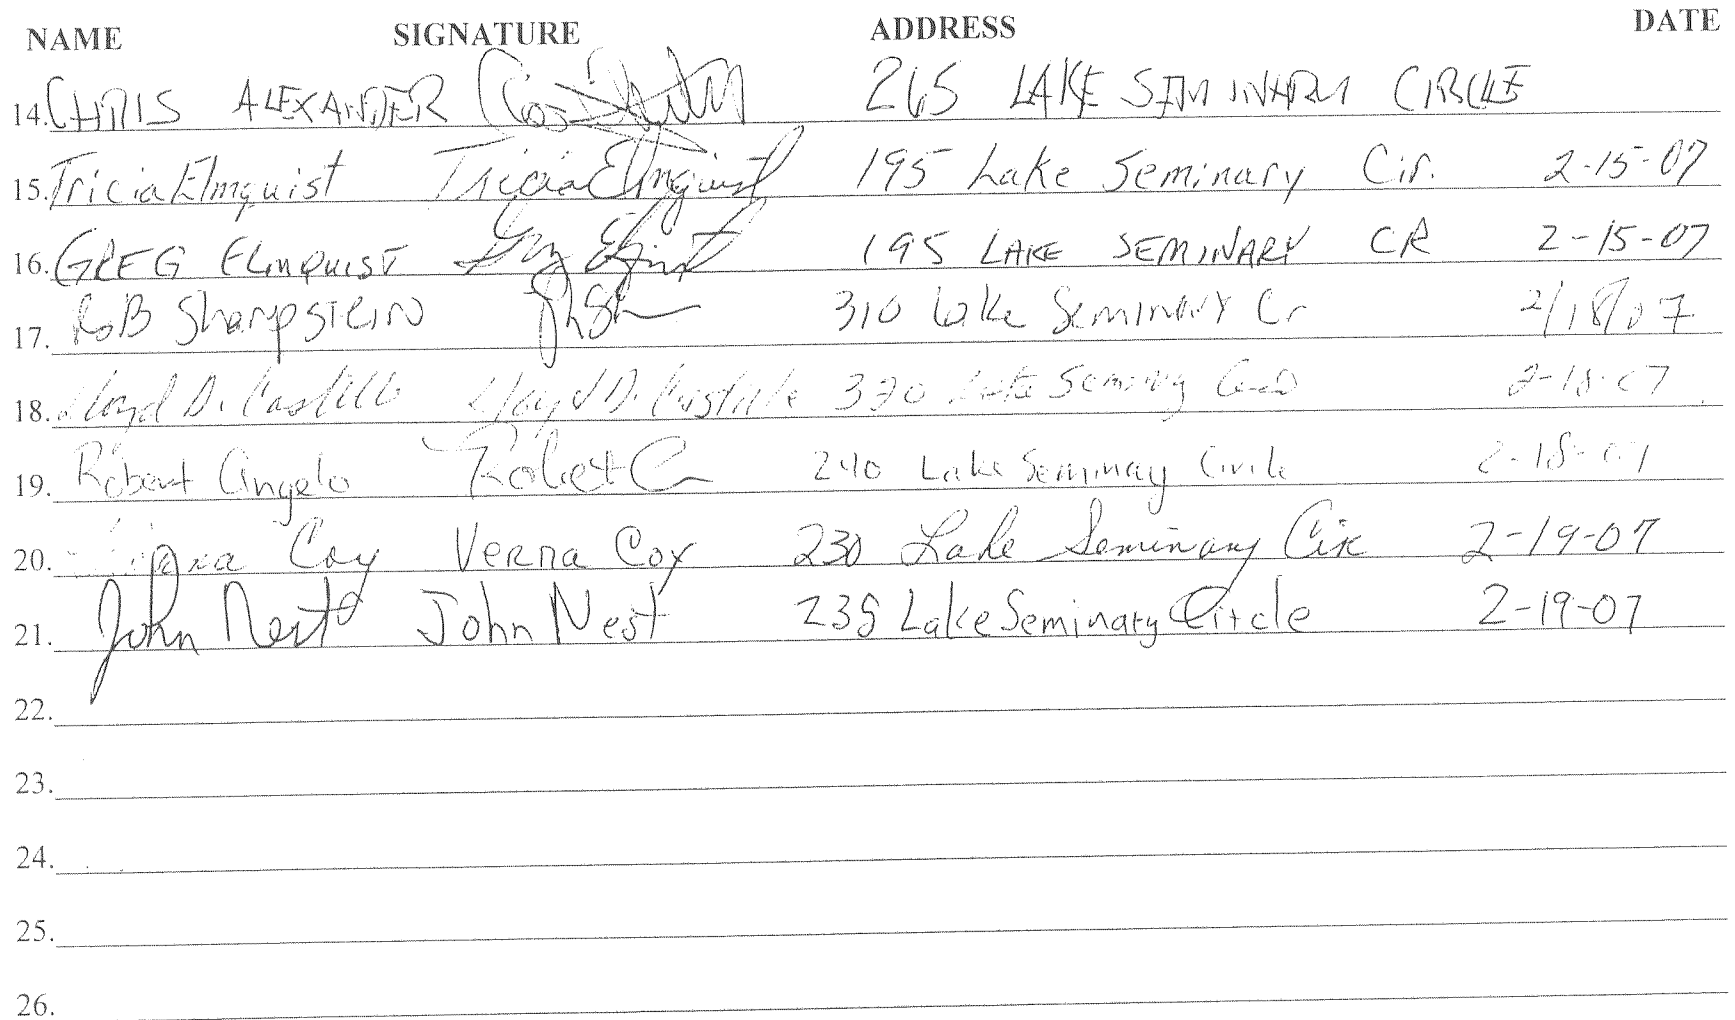 NAME SIGNATURE ADDRESS DATE
14. CHRIS ALEXANDER 265 LAKE SEMINARY CIRCLE
15. Tricia Elmquist Tricia Elmquist 195 Lake Seminary Cir. 2-15-07
16. GREG ELMQUIST Greg Elmquist 195 LAKE SEMINARY CR 2-15-07
17. ROB Sharpstein 310 Lake Seminary Cr 2/18/07
18. Lloyd D. Castillo Lloyd D. Castillo 320 Lake Seminary 2-18-07
19. Robert Angelo Robert 240 Lake Seminay Circle 2-18-07
20. Cox Verna Cox 230 Lake Seminary Cir 2-19-07
21. John Nest John Nest 235 Lake Seminary Circle 2-19-07
22.
23.
24.
25.
26.